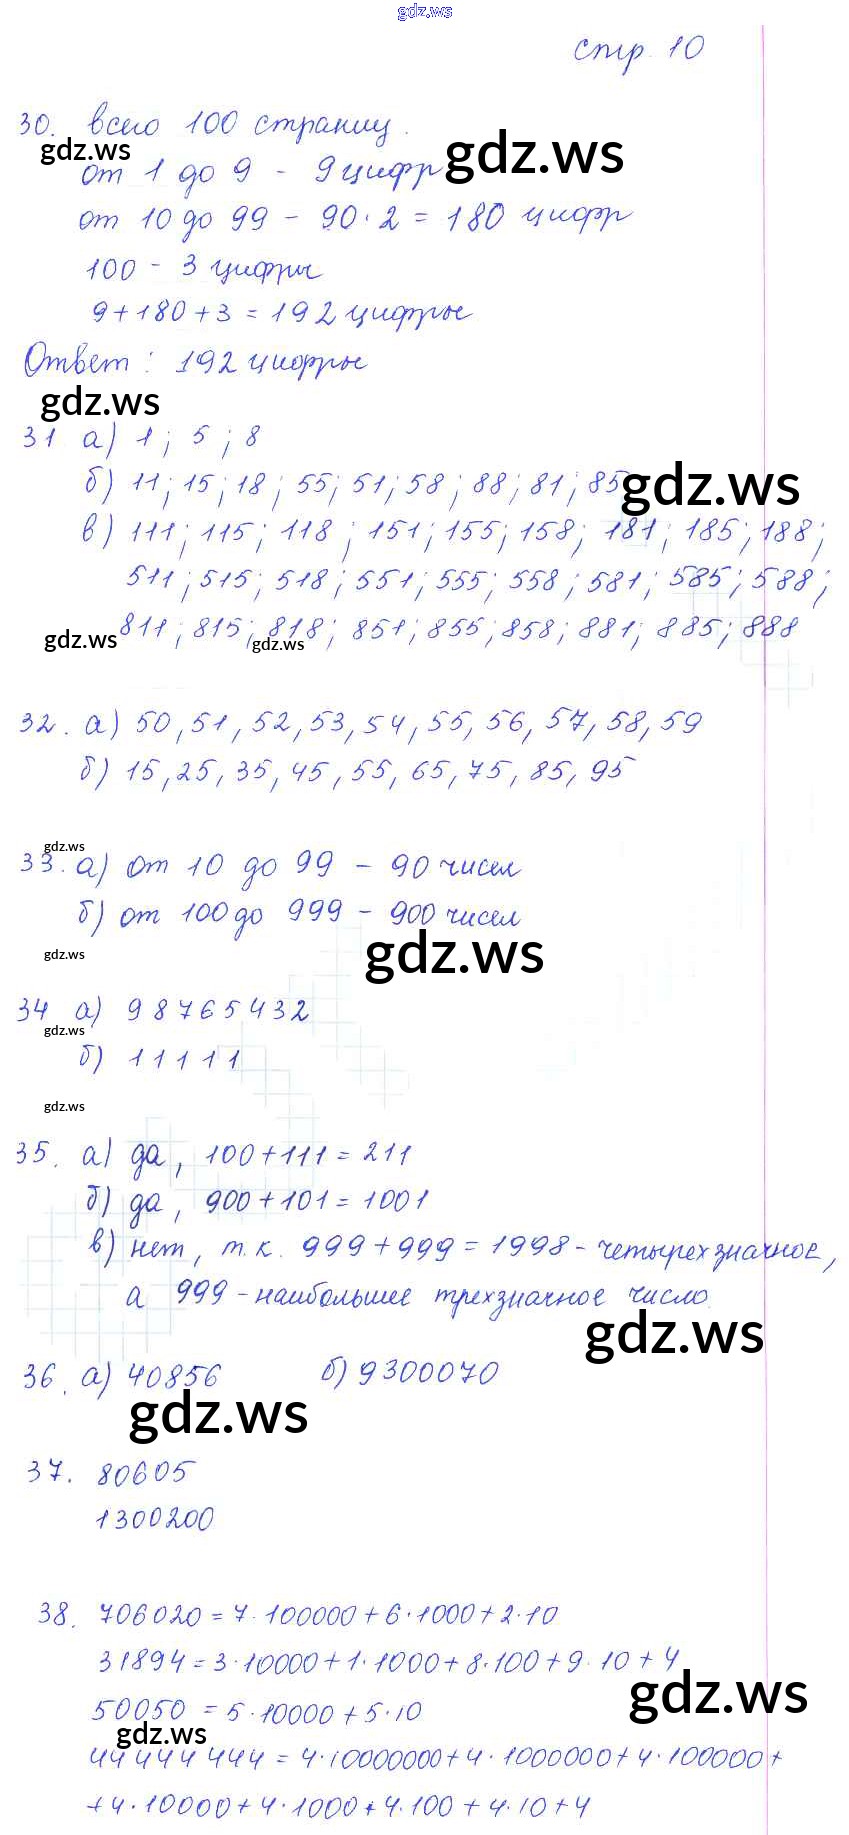 gdz.ws
стр. 10
30. всего 100 страниц.
gdz.ws
gdz.ws
от 1 до 9 - 9 цифр
от 10 до 99 - 90·2 = 180 цифр
100 - 3 цифры
9+180+3 = 192 цифры
Ответ: 192 цифры
gdz.ws
31 а) 1; 5; 8
б) 11; 15; 18; 55; 51; 58; 88; 81; 85
gdz.ws
в) 111; 115; 118; 151; 155; 158; 181; 185; 188;
511; 515; 518; 551; 555; 558; 581; 585; 588;
811; 815; 818; 851; 855; 858; 881; 885; 888
gdz.ws
gdz.ws
32. а) 50, 51, 52, 53, 54, 55, 56, 57, 58, 59
б) 15, 25, 35, 45, 55, 65, 75, 85, 95
gdz.ws
33. а) от 10 до 99 - 90 чисел
б) от 100 до 999 - 900 чисел
gdz.ws
gdz.ws
34 а) 98765432
gdz.ws
б) 11111
gdz.ws
35. а) да, 100+111=211
б) да, 900+101=1001
в) нет, т.к. 999+999=1998 - четырехзначное,
а 999 - наибольшее трехзначное число.
gdz.ws
36. а) 40856 б) 9300070
gdz.ws
37. 80605
1300200
38. 706020 = 7·100000+6·1000+2·10
31894 = 3·10000+1·1000+8·100+9·10+4
gdz.ws
50050 = 5·10000+5·10
gdz.ws
44444444 = 4·10000000+4·1000000+4·100000+
+4·10000+4·1000+4·100+4·10+4